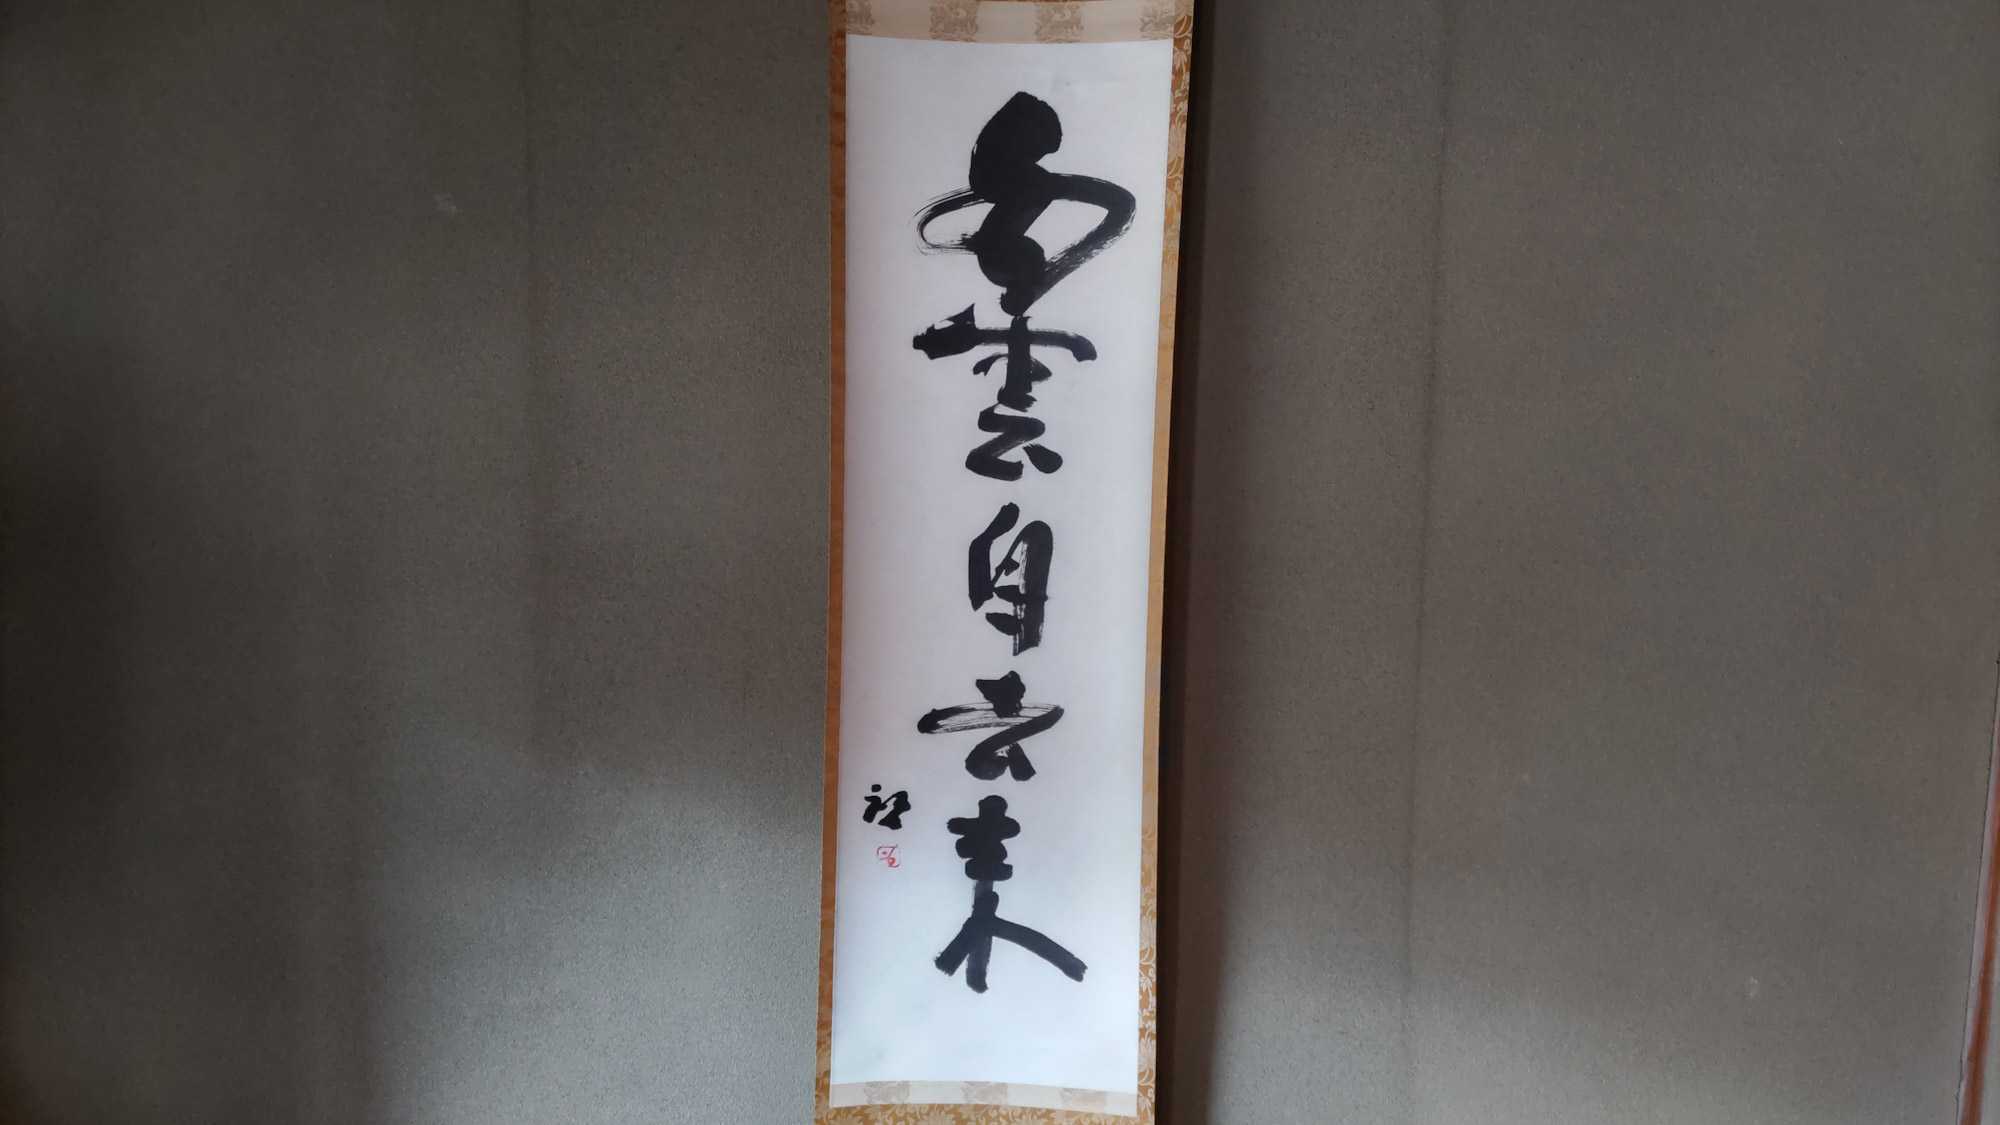 白雲自去来